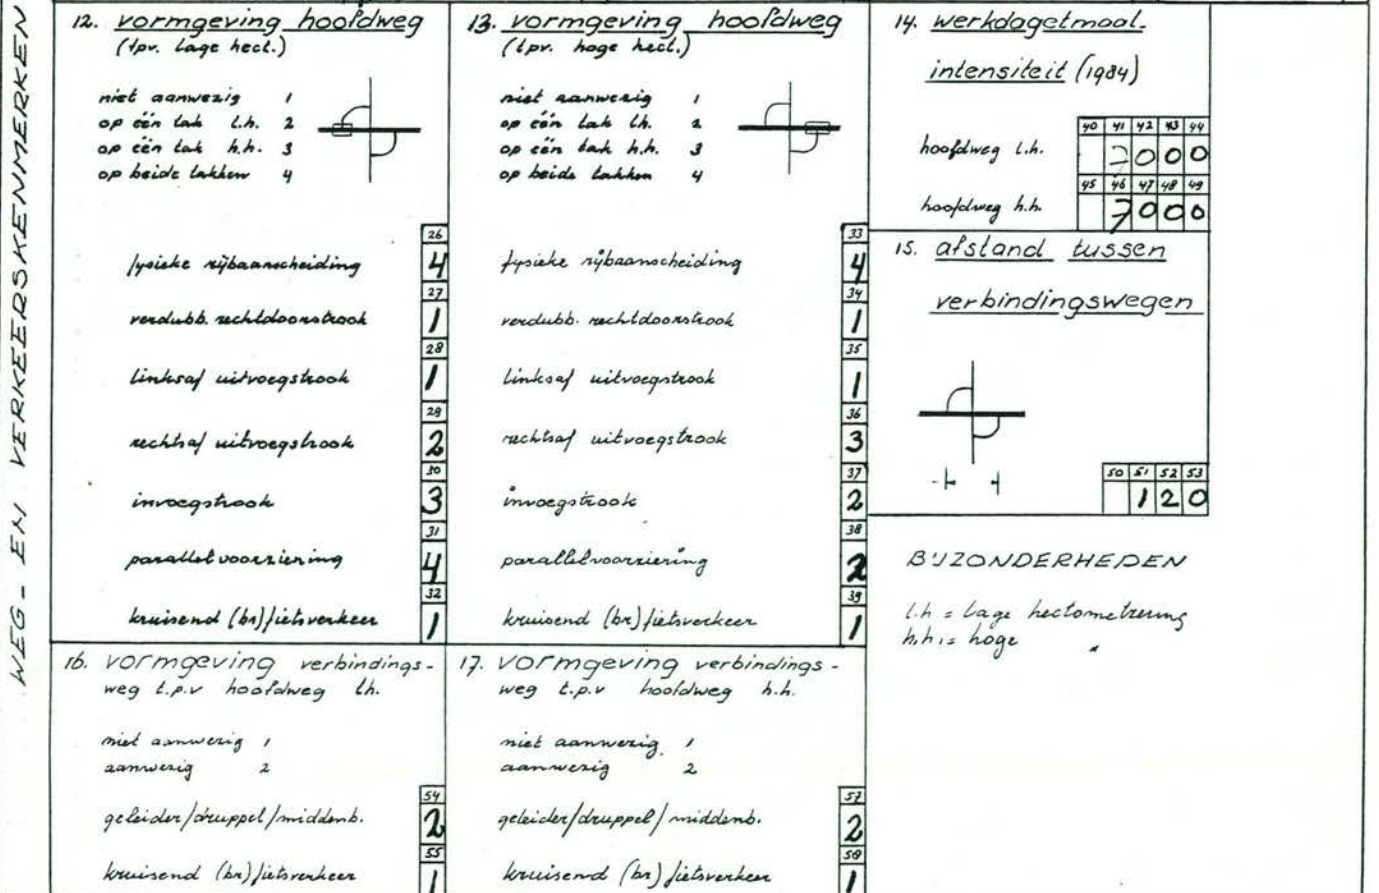 WEG- EN VERKEERSKENMERKEN
12. vormgeving hoofdweg
(tpv. lage hect.)
niet aanwezig 1
op één tak l.h. 2
op één tak h.h. 3
op beide takken 4
26
fysieke rijbaanscheiding 4
27
verdubb. rechtdoorstrook 1
28
linksaf uitvoegstrook 1
29
rechtsaf uitvoegstrook 2
30
invoegstrook 3
31
parallelvoorziening 4
32
kruisend (br)fietsverkeer 1
13. vormgeving hoofdweg
(tpv. hoge hect.)
niet aanwezig 1
op één tak l.h. 2
op één tak h.h. 3
op beide takken 4
33
fysieke rijbaanscheiding 4
34
verdubb. rechtdoorstrook 1
35
linksaf uitvoegstrook 1
36
rechtsaf uitvoegstrook 3
37
invoegstrook 2
38
parallelvoorziening 2
39
kruisend (br)fietsverkeer 1
14. werkdagetmaal-
intensiteit (1984)
40 41 42 43 44
hoofdweg l.h. 7000
45 46 47 48 49
hoofdweg h.h. 7000
15. afstand tussen
verbindingswegen
50 51 52 53
120
BIJZONDERHEDEN
l.h = lage hectometrering
h.h. = hoge "
16. vormgeving verbindings-
weg t.p.v hoofdweg l.h.
niet aanwezig 1
aanwezig 2
54
geleider/druppel/middenb. 2
55
kruisend (br)fietsverkeer 1
17. vormgeving verbindings-
weg t.p.v hoofdweg h.h.
niet aanwezig 1
aanwezig 2
57
geleider/druppel/middenb. 2
58
kruisend (br)fietsverkeer 1